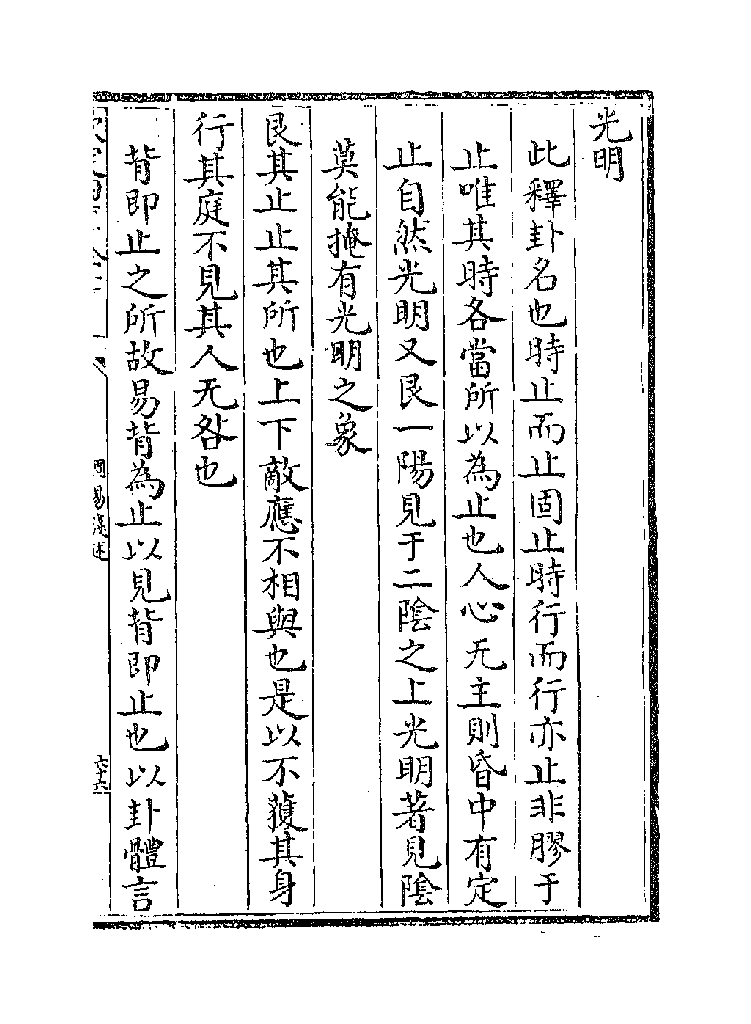 光明
此釋卦名也時止而止固止時行而行亦止非膠于
止唯其時各當所以為止也人心无主則昏中有定
止自然光明又艮一陽見于二陰之上光明著見陰
莫能掩有光明之象
艮其止止其所也上下敵應不相與也是以不獲其身
行其庭不見其人无咎也
背即止之所故易背為止以見背即止也以卦體言
周易淺述
六十六